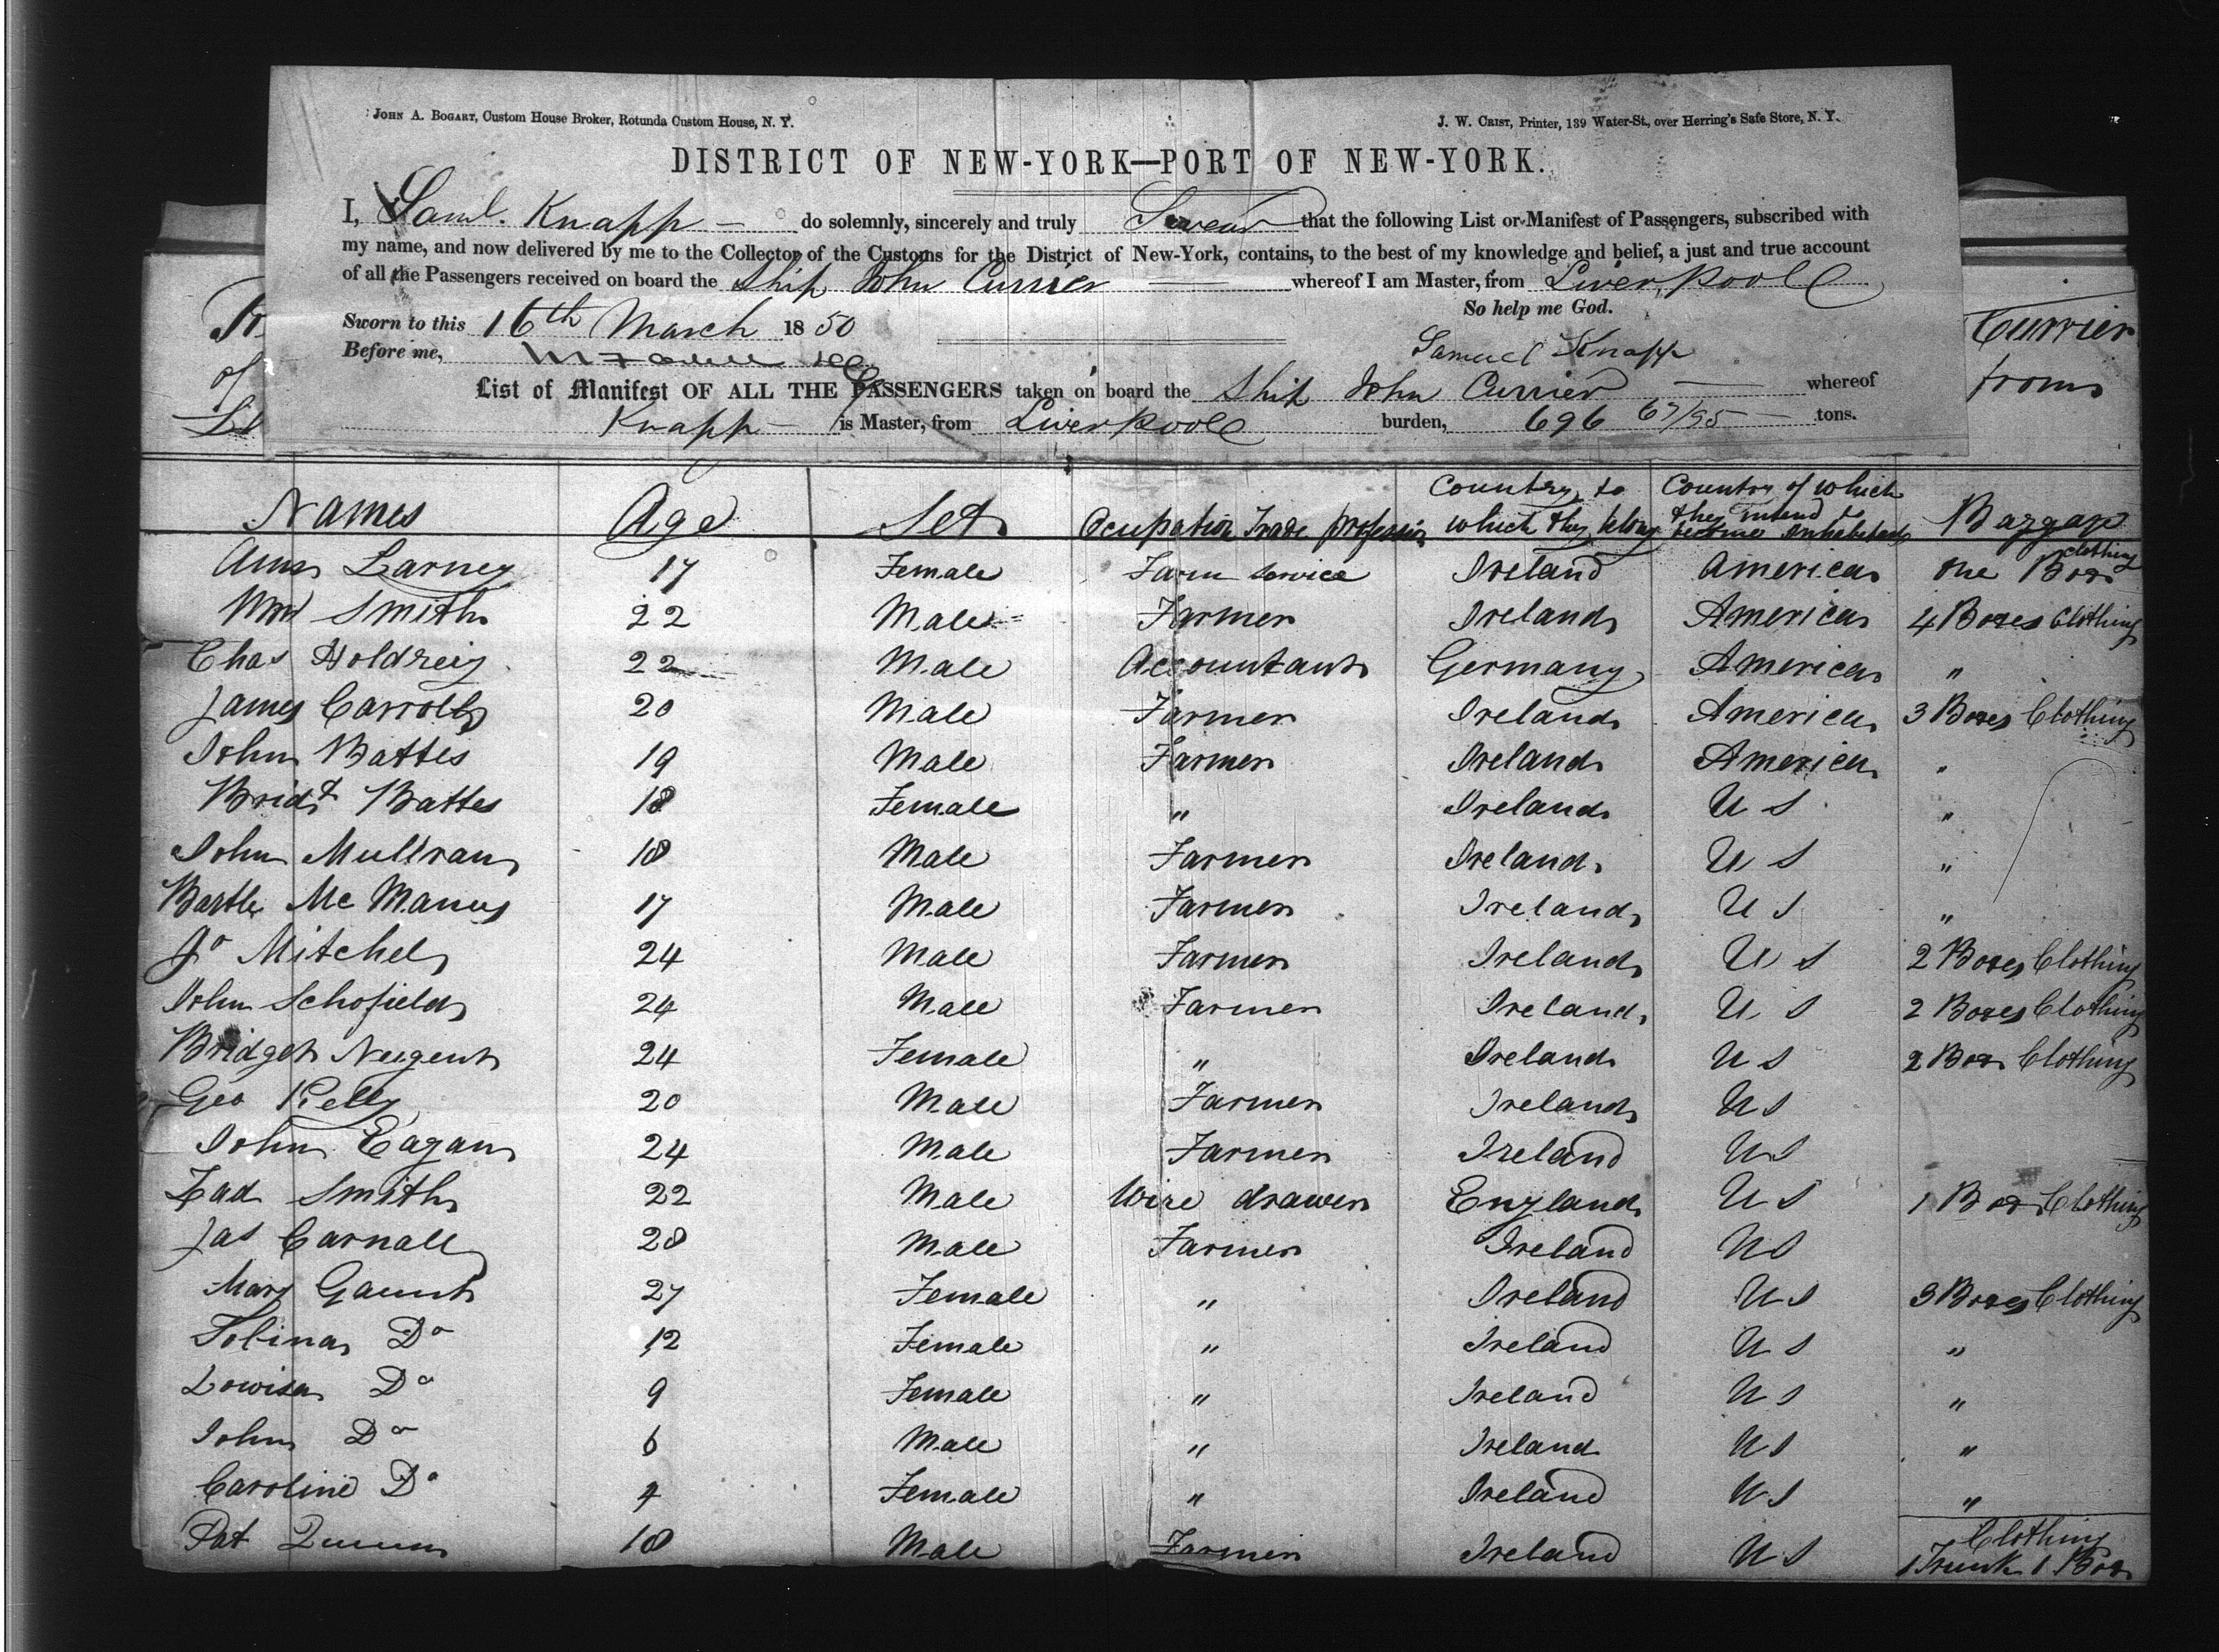 JOHN A. BOGART, Custom House Broker, Rotunda Custom House, N. Y.
J. W. CRIST, Printer, 139 Water-St., over Herring's Safe Store, N. Y.
DISTRICT OF NEW-YORK—PORT OF NEW-YORK.
I, Saml. Knapp — do solemnly, sincerely and truly Swear that the following List or Manifest of Passengers, subscribed with
my name, and now delivered by me to the Collector of the Customs for the District of New-York, contains, to the best of my knowledge and belief, a just and true account
of all the Passengers received on board the Ship John Currier — whereof I am Master, from Liverpooll
So help me God.
Sworn to this 16th March 1850
Samuel Knapp
Before me,
List of Manifest OF ALL THE PASSENGERS taken on board the Ship John Currier — whereof
Knapp — is Master, from Liverpooll burden, 696 67/95 — tons.
Currier
of
from
Names Age Sex Ocupation Trade profession Country to which they belong Country of which they intend to become Inhabitants Baggage
Larney 17 Female Farm Service Ireland America One Box Clothing
Wm Smith 22 Male Farmer Ireland America 4 Boxes Clothing
Chas Holdreig 22 Male Accountant Germany America "
James Carroll 20 Male Farmer Ireland America 3 Boxes Clothing
John Battes 19 Male Farmer Ireland America "
Bridt Battes 18 Female " Ireland U S "
John Mullran 18 Male Farmer Ireland U S "
Bartle Mc Manus 17 Male Farmer Ireland U S "
Jo Mitchel 24 Male Farmer Ireland U S 2 Boxes Clothing
John Schofield 24 Male Farmer Ireland U S 2 Boxes Clothing
Bridget Nugent 24 Female " Ireland U S 2 Box Clothing
Geo Kelly 20 Male Farmer Ireland U S
John Eagan 24 Male Farmer Ireland U S
Zad Smith 22 Male Wire drawer England U S 1 Box Clothing
Jas Carnall 28 Male Farmer Ireland U S
Mary Gaunt 27 Female " Ireland U S 3 Boxes Clothing
Do 12 Female " Ireland U S "
Lowisa Do 9 Female " Ireland U S "
John Do 6 Male " Ireland U S "
Caroline Do 4 Female " Ireland U S "
Pat Quinn 18 Male Farmer Ireland U S Clothing 1 Trunk 1 Box